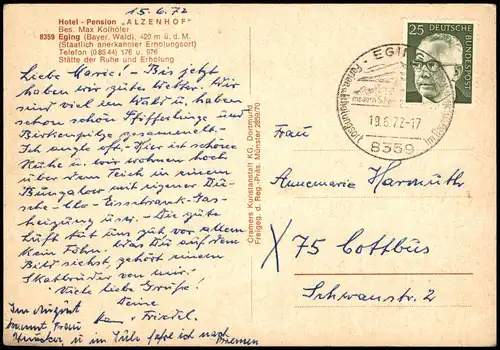 15.6.72
Hotel - Pension „ALZENHOF"
Bes. Max Kolhöfer
8359 Eging (Bayer. Wald), 420 m ü. d. M.
(Staatlich anerkannter Erholungsort)
Telefon (0 85 44) 176 u. 976
Stätte der Ruhe und Erholung
Liebe Marie! – Bis jetzt
haben wir gutes Wetter. Wir
sind viel im Wald u. haben
schon schön Pfifferlinge und
Birkenpilze gesammelt –
Ich angle oft. Hier ist schöne
Ruhe u. wir wohnen hoch
über dem Teich in einem
Bungalow mit eigener Du-
sche – Clo – Eisschrank – Gas-
heizung usw. – Die gute
Luft tut uns gut, vor allem
kein Föhn. Was Du auf dem
Bild siehst, gehört einem
Skatbruder von mir.
Viele liebe Grüße!
Deine
Friedel.
Im August
kommt Frau
u. im Juli fahre ich nach
Bremen
Cramers Kunstanstalt KG, Dortmund
Freigeg. d. Reg.-Präs. Münster 2859/70
25 DEUTSCHE
BUNDESPOST
EGING
19.6.72-17
8359
Frau
Annemarie Harmuth
X 75 Cottbus
Schwanstr. 2